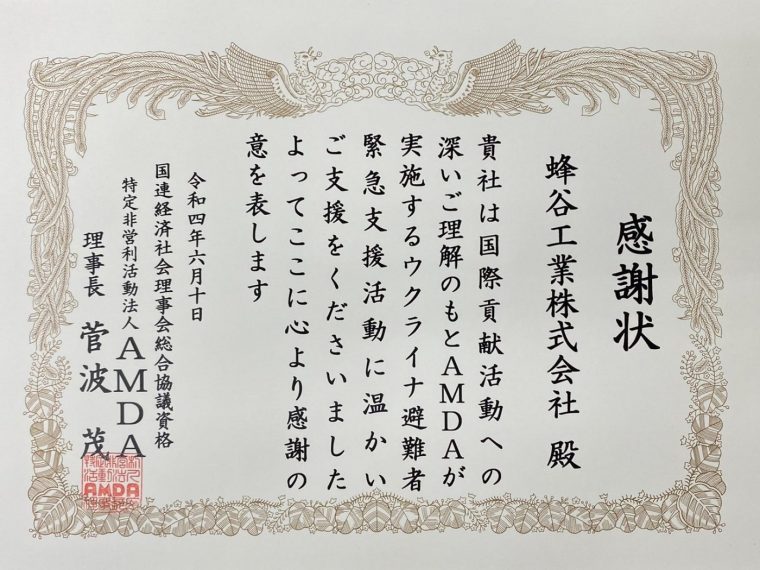 感謝状
蜂谷工業株式会社 殿
貴社は国際貢献活動への
深いご理解のもとAMDAが
実施するウクライナ避難者
緊急支援活動に温かい
ご支援をくださいました
よってここに心より感謝の
意を表します
令和四年六月十日
国連経済社会理事会総合協議資格
特定非営利活動法人 AMDA
理事長 菅波 茂
AMDA